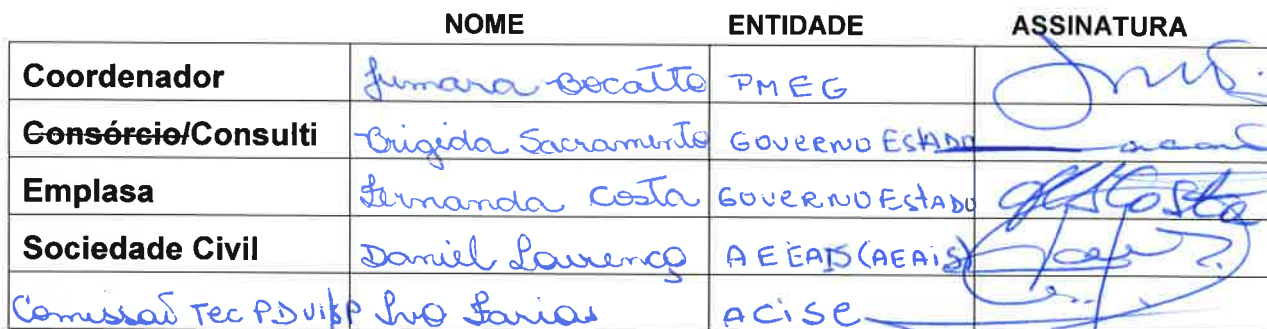 NOME ENTIDADE ASSINATURA
Coordenador Jumara Bocatto PMEG
Consórcio/Consulti Brigida Sacramento GOVERNO ESTADO
Emplasa Fernanda Costa GOVERNO ESTADO
Sociedade Civil Daniel Lourenço (AEAIS)
Comissaõ Tec Ivo Farias ACISE